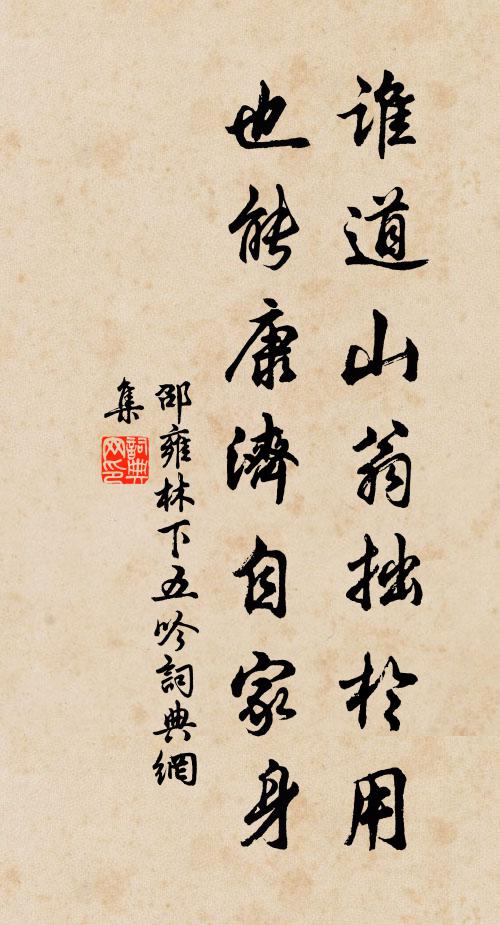 谁道山翁拙於用
也能康濟自家身
邵雍林下五吟詞典網
集
詞典網印